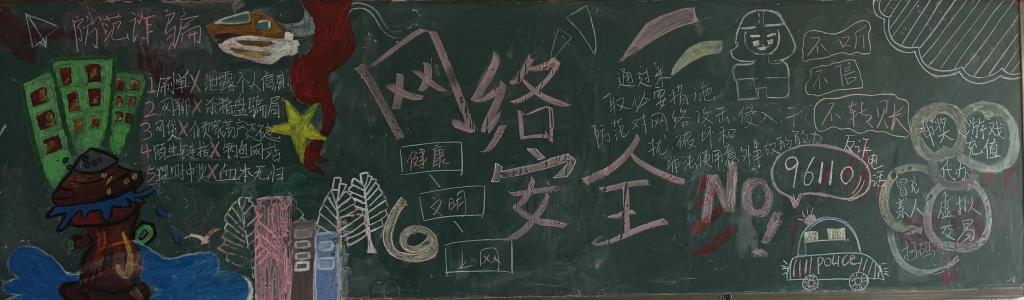 防范诈骗
1 刷单X 泄露个人信息
2 网聊X 杀猪盘骗局
3 网贷X
4 陌生链接X 网站
5 理财中奖X 血本无归
网络
安全
健康
文明
上网
通过采
取必要措施,
防范对网络攻击,侵入,干
扰,破坏和
非法使用
NO!
96110
反诈
电话
不听
不信
不转账
POLICE
中奖
游戏
充值
代办
冒充
亲人
虚拟
交易
扫码